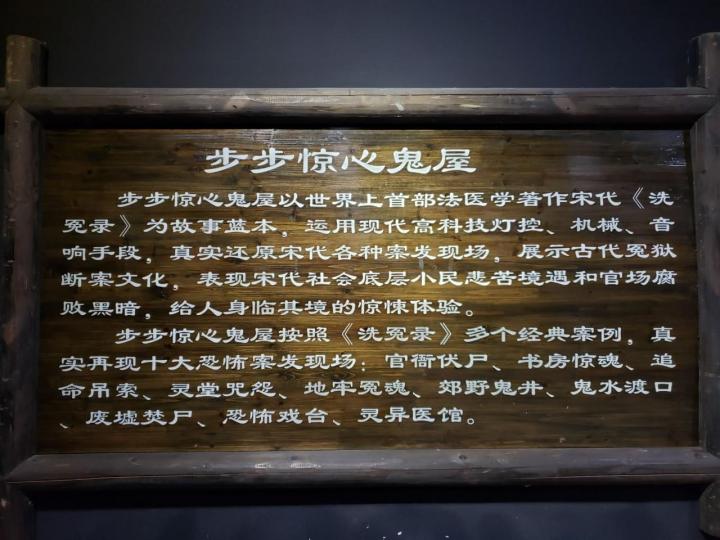 步步惊心鬼屋
步步惊心鬼屋以世界上首部法医学著作宋代《洗
冤录》为故事蓝本，运用现代高科技灯控、机械、音
响手段，真实还原宋代各种案发现场，展示古代冤狱
断案文化，表现宋代社会底层小民悲苦境遇和官场腐
败黑暗，给人身临其境的惊悚体验。
步步惊心鬼屋按照《洗冤录》多个经典案例，真
实再现十大恐怖案发现场：官衙伏尸、书房惊魂、追
命吊索、灵堂咒怨、地牢冤魂、郊野鬼井、鬼水渡口
、废墟焚尸、恐怖戏台、灵异医馆。